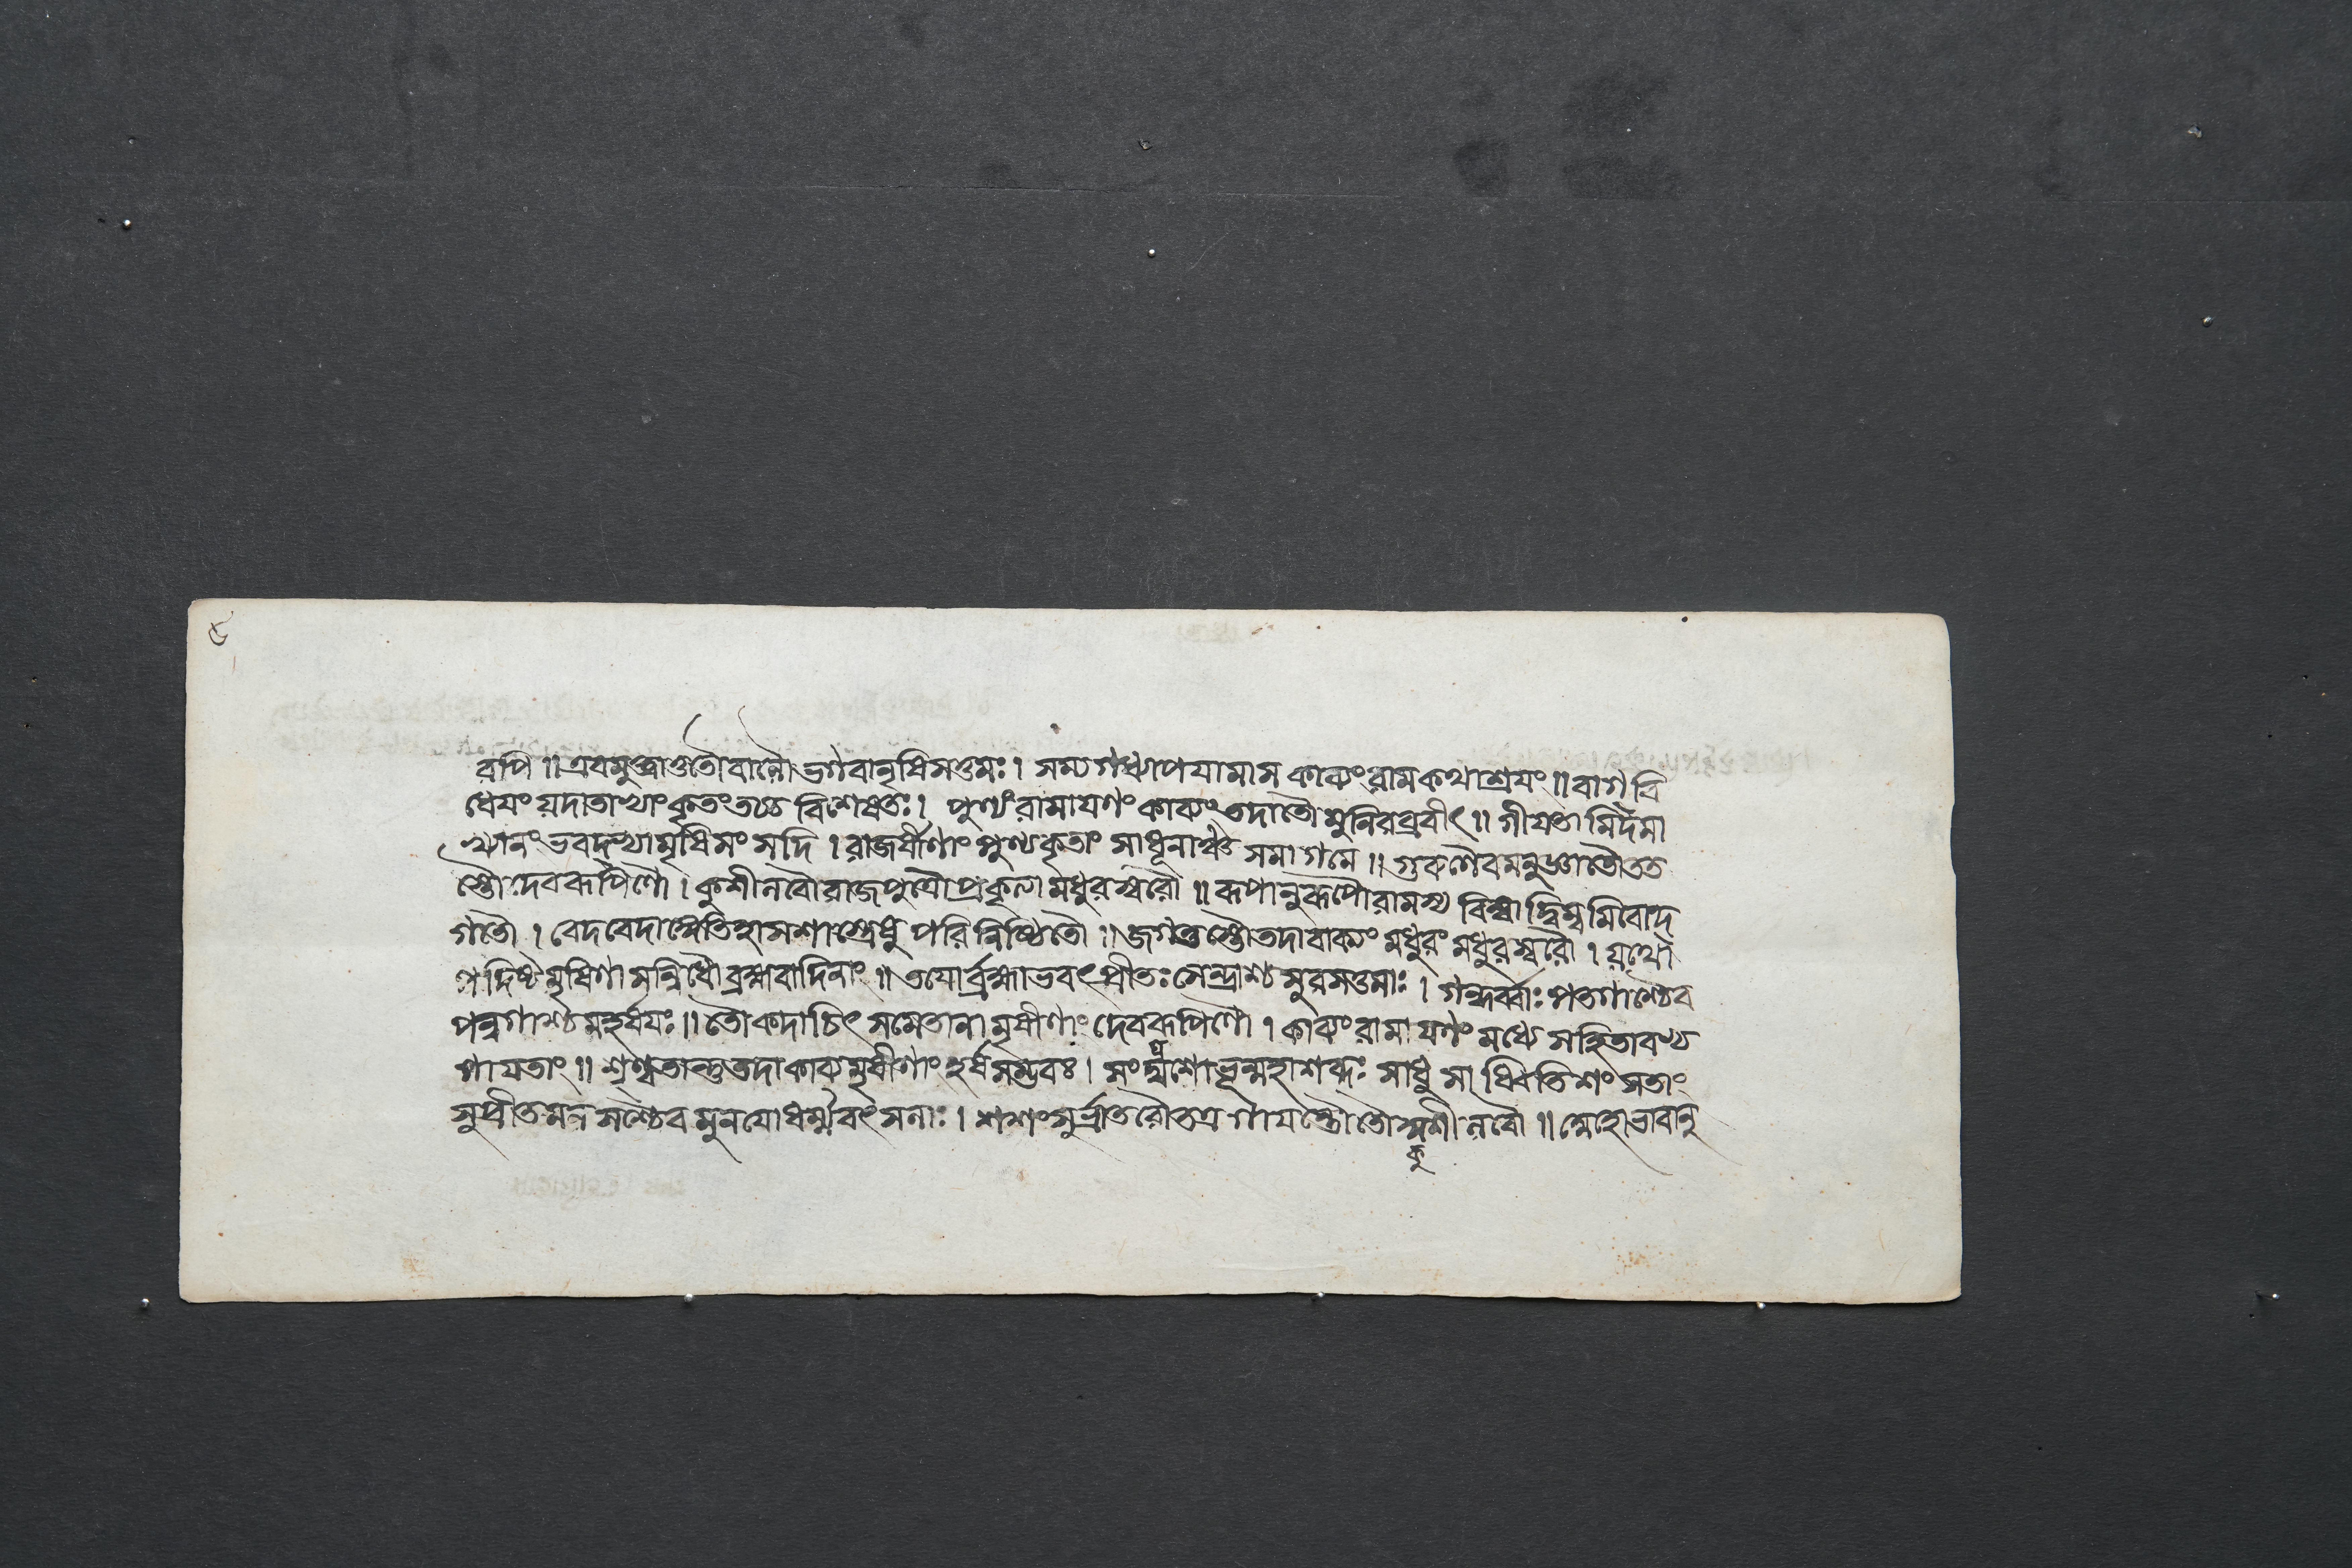 ৫
রপি ॥ এবমুক্ত্বাতুতৌবালৌভগবানৃষিসত্তমঃ। সম্যগধ্যাপযামাস কাব্যংরামকথাশ্রযং ॥ বাগ্বি
ধেযং যদাতাভ্যাংকৃতং বিশেষতঃ। পুণ্যং রামাযণং কাব্যং তদাতৌ মুনিরব্রবীৎ ॥ গীযতামিদমা
খ্যানংভবদ্ভ্যামৃষিসংসদি। রাজর্ষীণাং পুণ্যকৃতাং সাধূনাঞ্চ সমাগমে ॥ গুরুণৈবমনুজ্ঞাতৌতত
স্তৌ দেবরূপিণৌ। কুশীলবৌরাজপুত্রৌপ্রকৃত্যা মধুরস্বরৌ ॥ রূপানুরূপৌরামস্য বিম্বাদ্বিম্বমিবোদ্
গতৌ। বেদবেদাঙ্গেতিহাসশাস্ত্রেষু পরিনিষ্ঠিতৌ ॥ জগতুস্তৌতদাবাক্যং মধুরং মধুরস্বরৌ। যথো
পদিষ্টমৃষিণা সন্নিধৌব্রহ্মবাদিনাং ॥ তযোর্ব্রহ্মাভবৎপ্রীতঃ সেন্দ্রাশ্চ সুরসত্তমাঃ। গন্ধর্ব্বাঃ পতগাশ্চৈব
পন্নগাশ্চ মহর্ষযঃ ॥ তৌ কদাচিৎ সমেতানামৃষীণাং দেবরূপিণৌ। কাব্যং রামাযণং মধ্যে সহিতাবভ্য
গাযতাং ॥ শৃণ্বতান্তুতদাকাব্যমৃষীণাং হর্ষসম্ভবঃ। মহাশব্দঃ সাধু সাধ্বিতিশংসতাং
সুপ্রীতমনসশ্চৈব মুনযোধর্ম্মবৎসলাঃ। শশংসুর্ভ্রাতরৌতত্র গাযন্তৌ তৌ কুশীলবৌ ॥ অহোভাবানু